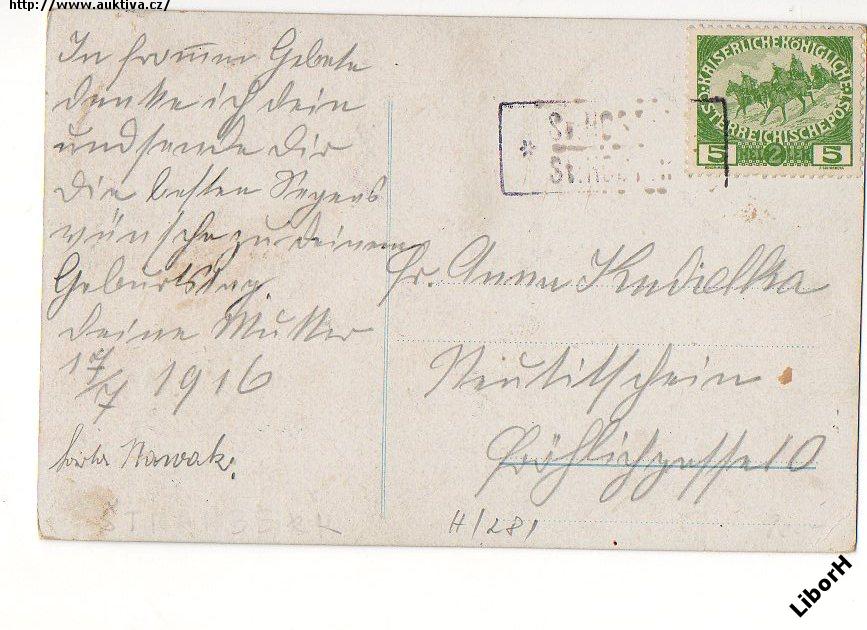 http://www.auktiva.cz/
In from̅en Gebete
denke ich dein
und sende Dir
die besten Segens
wünsche zu deinem
Geburtstag
deine Mutter
17/7 1916
Nowak.
KAISERLICHE KÖNIGLICHE
ÖSTERREICHISCHE POST
5 2 5
* Sv. HOS
St. HO
Fr. Anna Kudielka
Neutitschein
Fröhlichgasse 10
H/281
LiborH